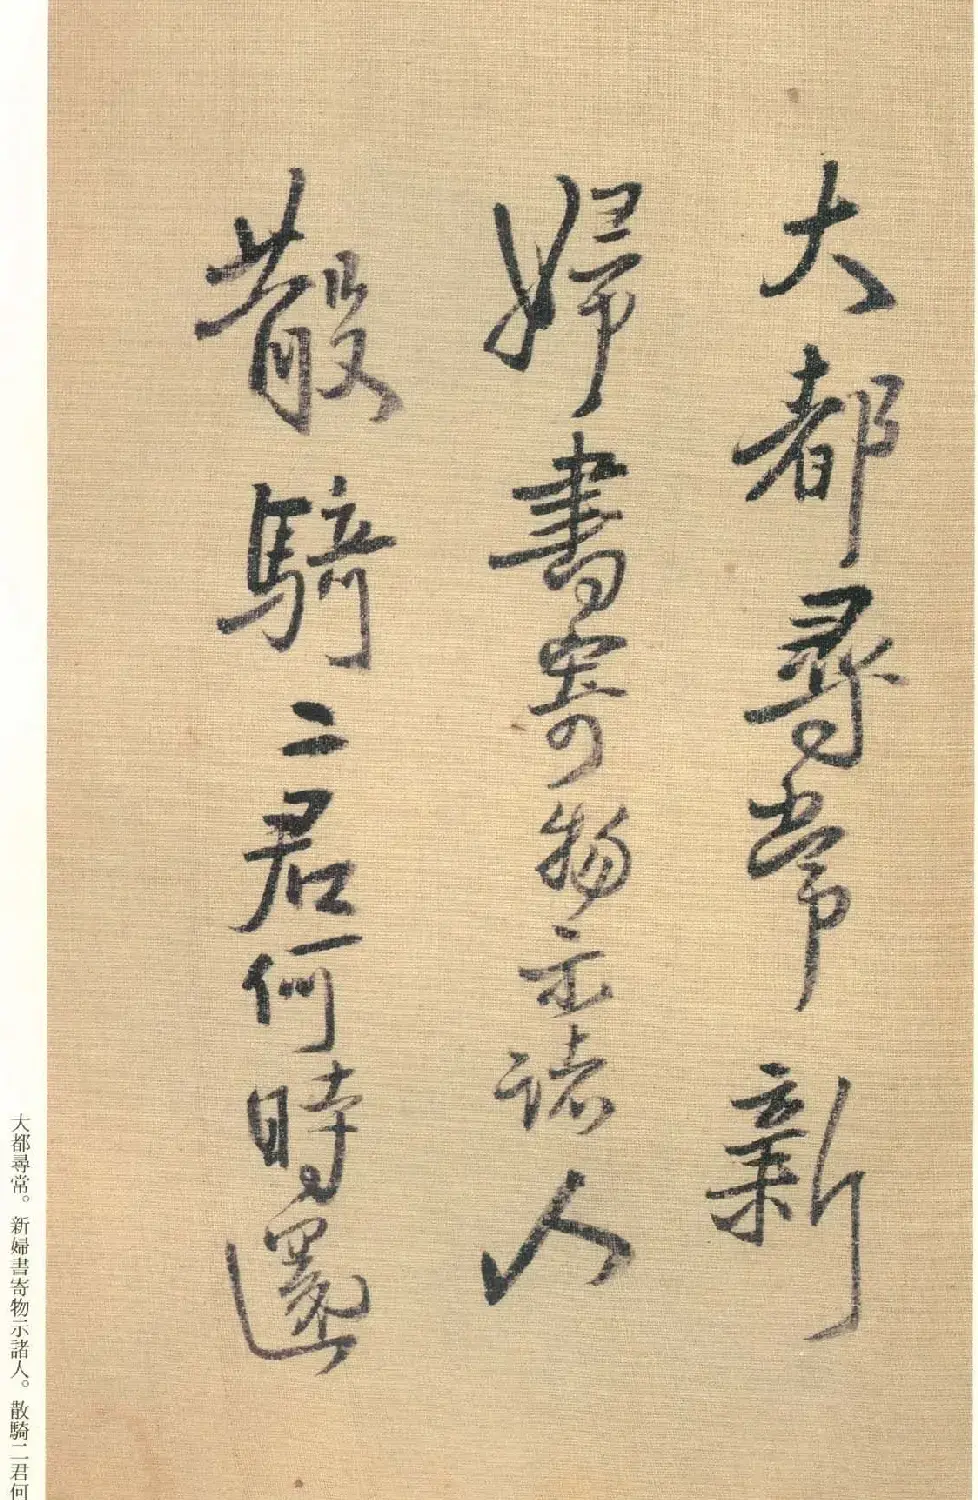 大都尋常新
婦書寄物示諸人
散騎二君何時還
大都尋常。新婦書寄物示諸人。散騎二君何